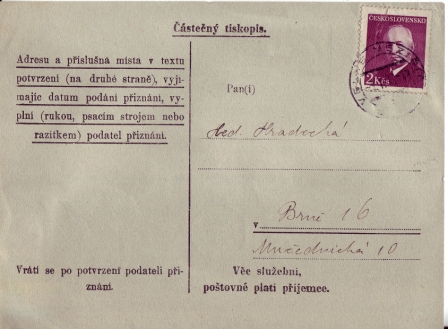 Částečný tiskopis.
ČESKOSLOVENSKO
2 Kčs
Adresu a příslušná místa v textu
potvrzení (na druhé straně), vyjí-
majíc datum podání přiznání, vy-
plní (rukou, psacím strojem nebo
razítkem) podatel přiznání.
Pan(í)
Hradecká
v Brně 16
10
Vrátí se po potvrzení podateli při-
znání.
Věc služební,
poštovné platí příjemce.